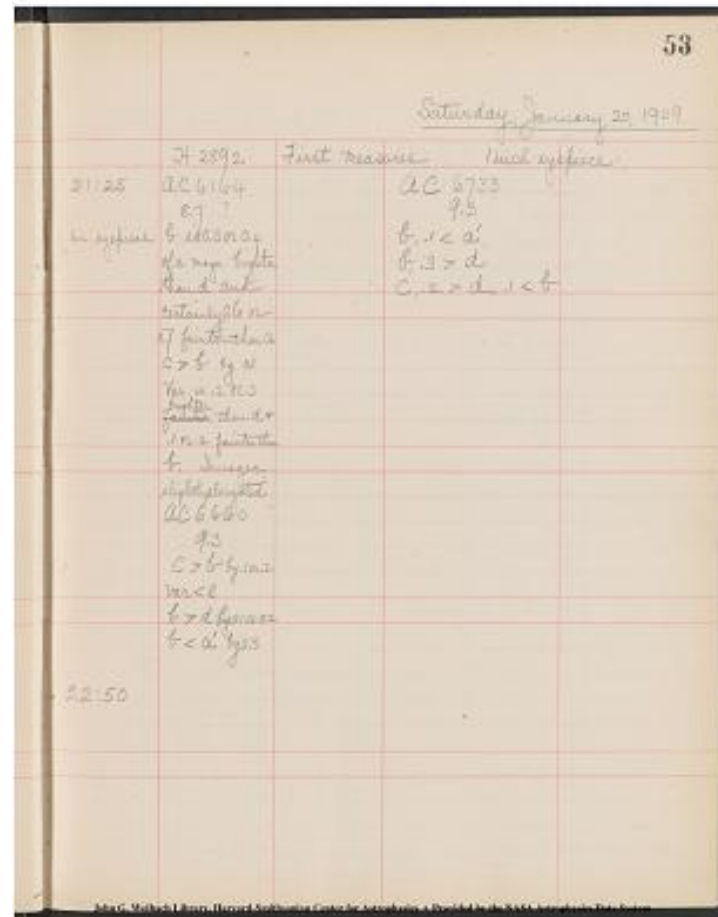 53
Saturday, January 23, 1909
H 2892 First measures Inch eyepiece
21:25
AC 6164
8.7 ?
eyepiece b
of a mag. brighter
than d and
certainly
fainter than
c > b by
Var. is .2 or .3
brighter
than d &
.1 or .2 fainter than
b. Images
slightly elongated
AC 6660
9.3
c > b by
var < c
b > d by
b < a' by 0.3
22:50
AC 6733
9.3
b .1 < a'
b .3 > d
c .2 > d .1 < b
John G. Wolbach Library, Harvard-Smithsonian Center for Astrophysics • Provided by the NASA Astrophysics Data System